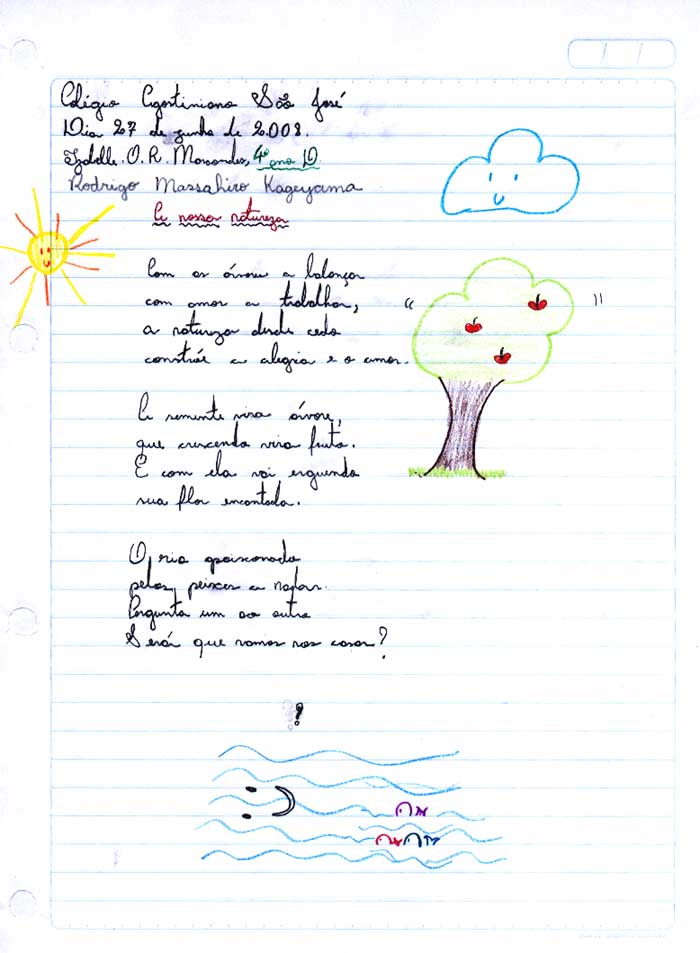 Colégio Agostiniano São José
Dia 27 de junho de 2008.
Izabelle. O. R. Marcondes, 4º ano D
Rodrigo Massahiro Kageyama
A nossa natureza
Com as árvores a balançar
com amor a trabalhar,
a natureza desde cedo
constrói a alegria e o amor.
A semente vira árvore,
que crescendo vira fruto.
E com ela vai erguendo
sua flor encantada.
O rio apaixonado
pelos peixes a nadar.
Pergunta um ao outro
Será que vamos nos casar?
?